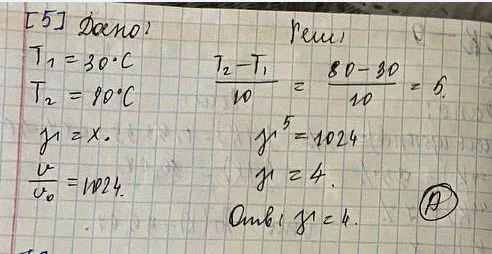 [5] Дано: Реш:
T₁ = 30°C
T₂ = 80°C
γ = x.
v/v₀ = 1024.
(T₂ – T₁)/10 = (80 – 30)/10 = 5.
γ⁵ = 1024
γ = 4.
Отв: γ = 4.
(A)